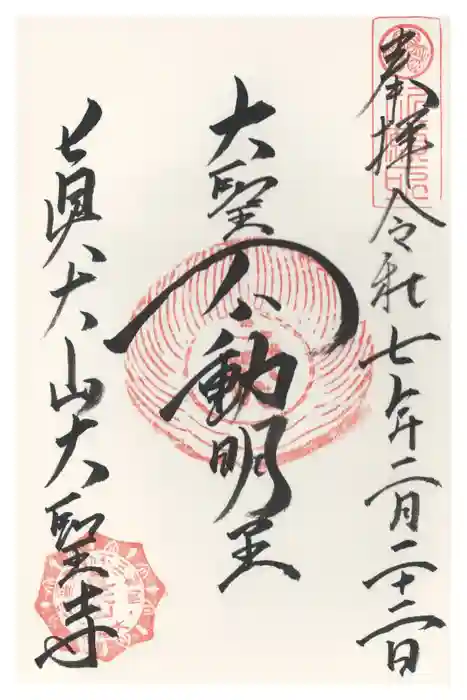 奉拝 令和七年二月二十二日
大聖不動明王
真犬山大聖寺